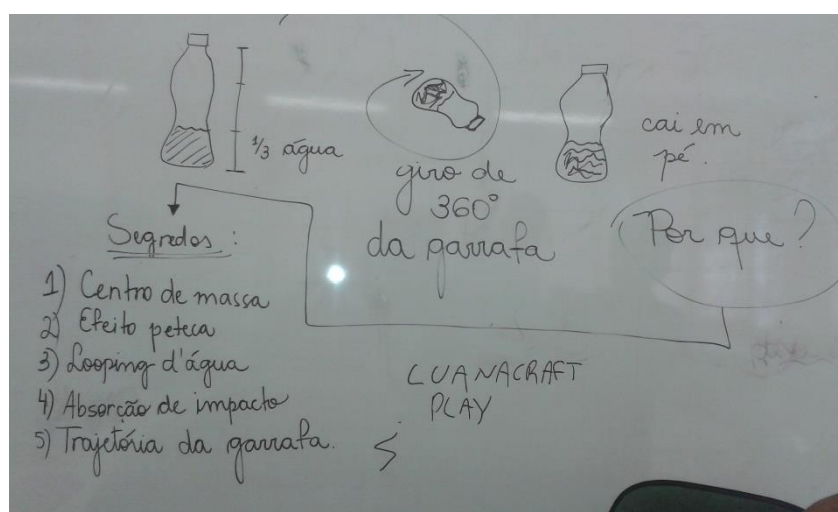 1/3 água
giro de
360°
da garrafa
cai em
pé.
Por que?
Segredos:
1) Centro de massa
2) Efeito peteca
3) Looping d'água
4) Absorção de impacto
5) Trajetória da garrafa.
LUANACRAFT
PLAY